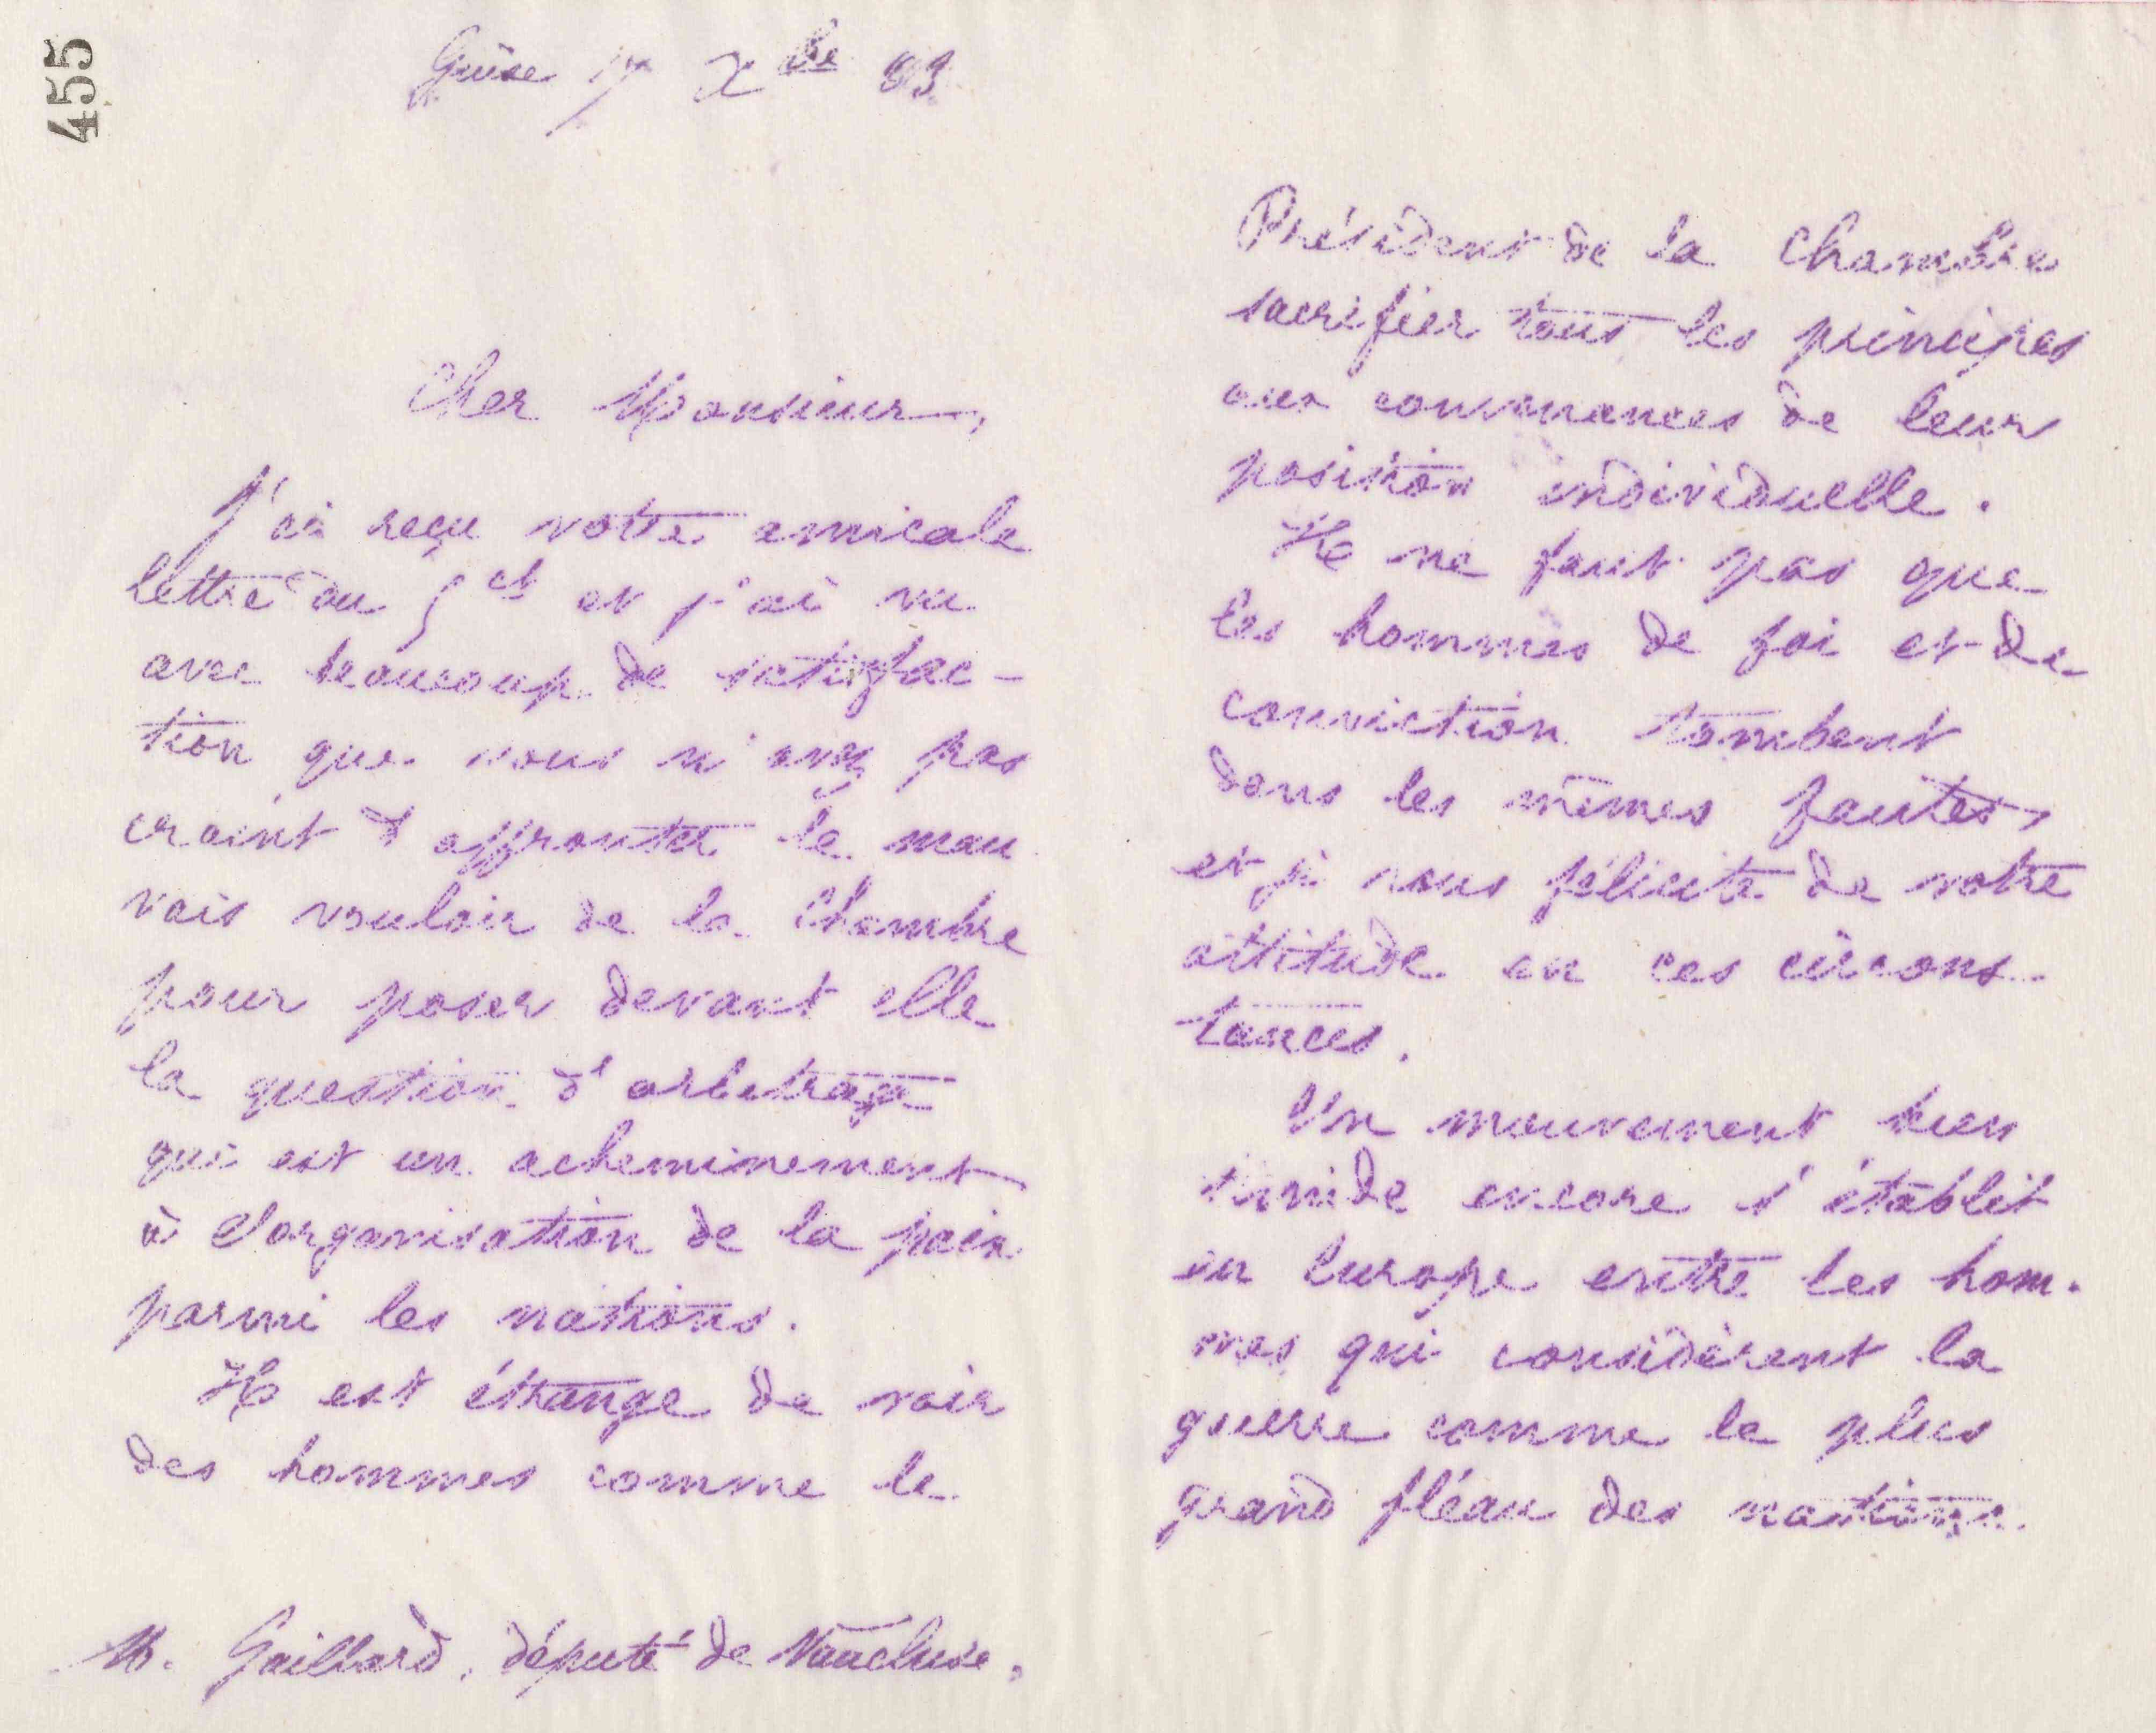 455
Guise 17 Xbre 83
Cher Monsieur,
J'ai reçu votre amicale
lettre du 5 ct et j'ai vu
avec beaucoup de satisfac-
tion que vous n'avez pas
craint d'affronter le mau
vais vouloir de la Chambre
pour poser devant elle
la question d'arbitrage
qui est un acheminement
à l'organisation de la paix
parmi les nations.
Il est étrange de voir
des hommes comme le
M. Gaillard, député de Vaucluse.
Président de la Chambre
sacrifier tous les principes
aux convenances de leur
position individuelle.
Il ne faut pas que
les hommes de foi et de
conviction tombent
dans les mêmes fautes,
et je vous félicite de votre
attitude en ces circons-
tances.
Un mouvement bien
timide encore s'établit
en Europe entre les hom-
mes qui considèrent la
guerre comme le plus
grand fléau des nations.